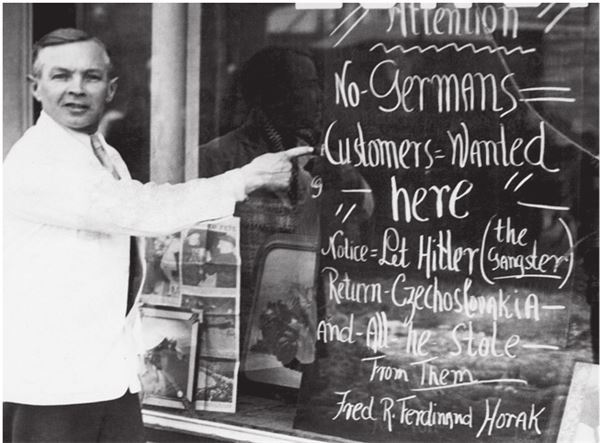 Attention
No-Germans
Customers=Wanted
here
Notice=Let Hitler (the Gangster)
Return-Czechoslovakia
and-All he Stole
From Them
Fred R. Ferdinand Horak